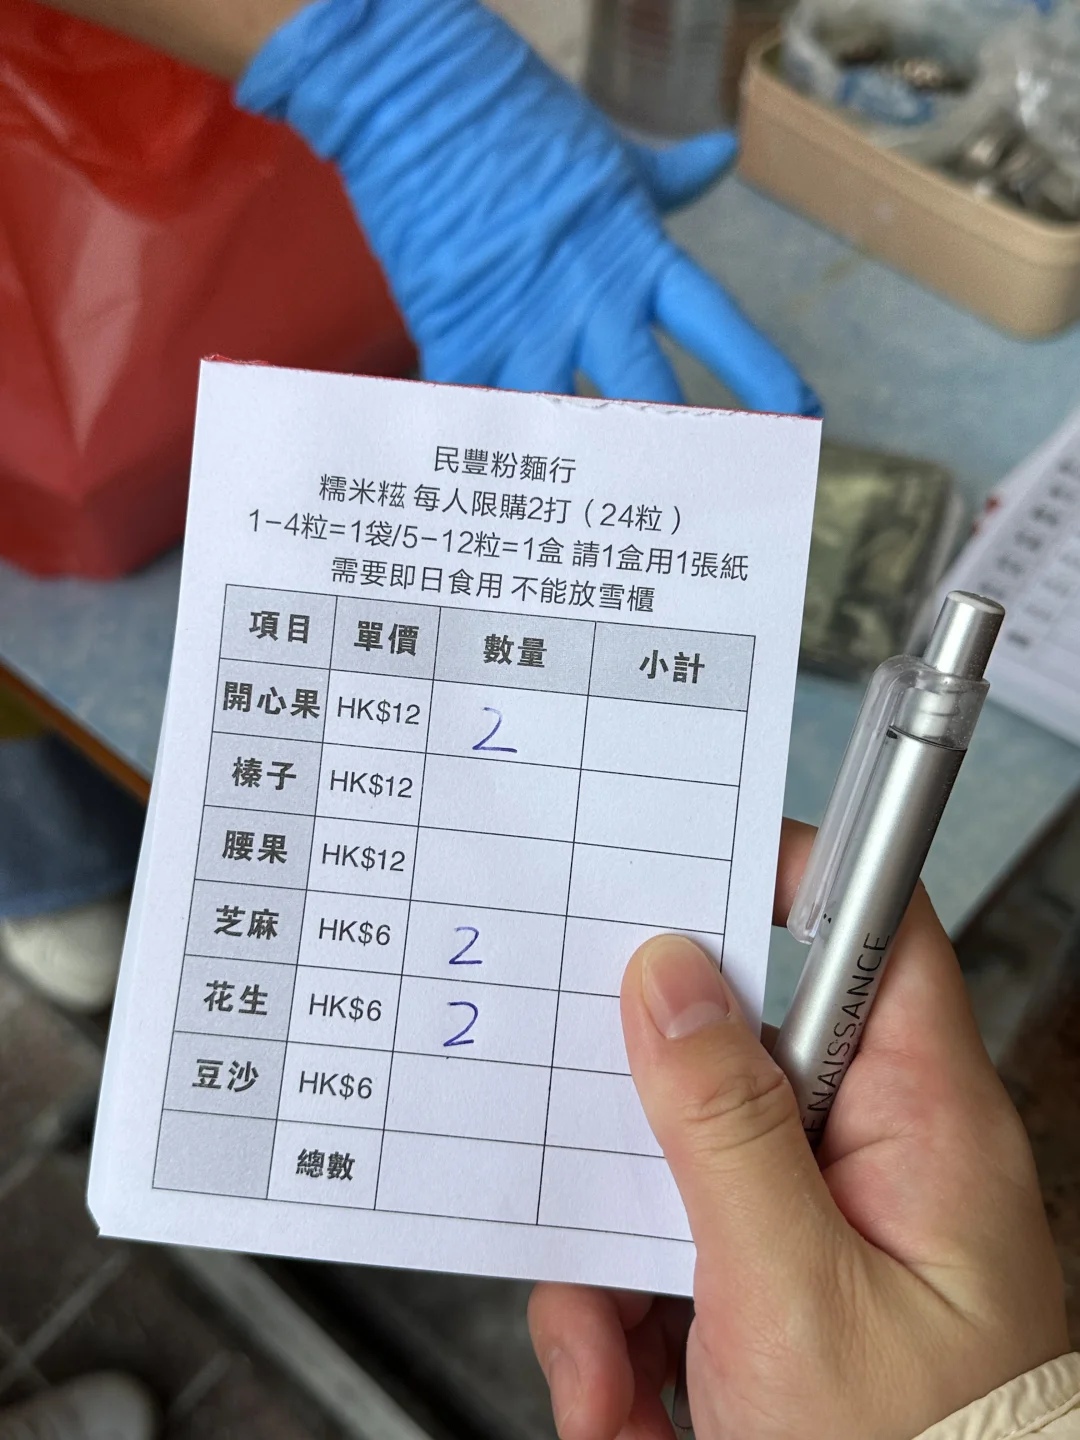 民豐粉麵行
糯米糍 每人限購2打（24粒）
1-4粒=1袋/5-12粒=1盒 請1盒用1張紙
需要即日食用 不能放雪櫃
項目 單價 數量 小計
開心果 HK$12 2
榛子 HK$12
腰果 HK$12
芝麻 HK$6 2
花生 HK$6 2
豆沙 HK$6
總數
ENAISSANCE